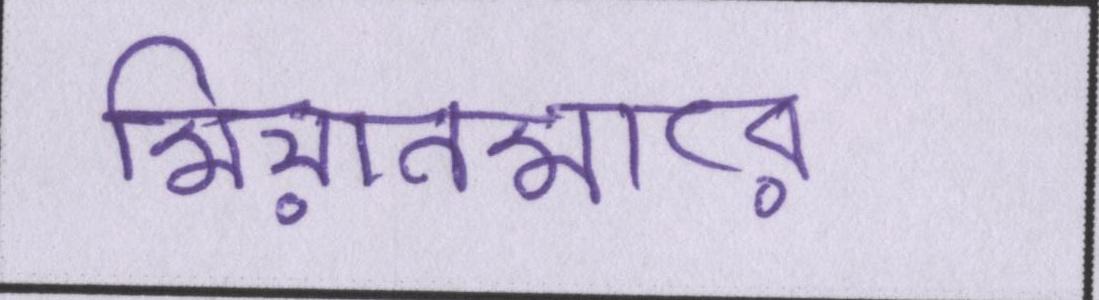 মিয়ানমারে